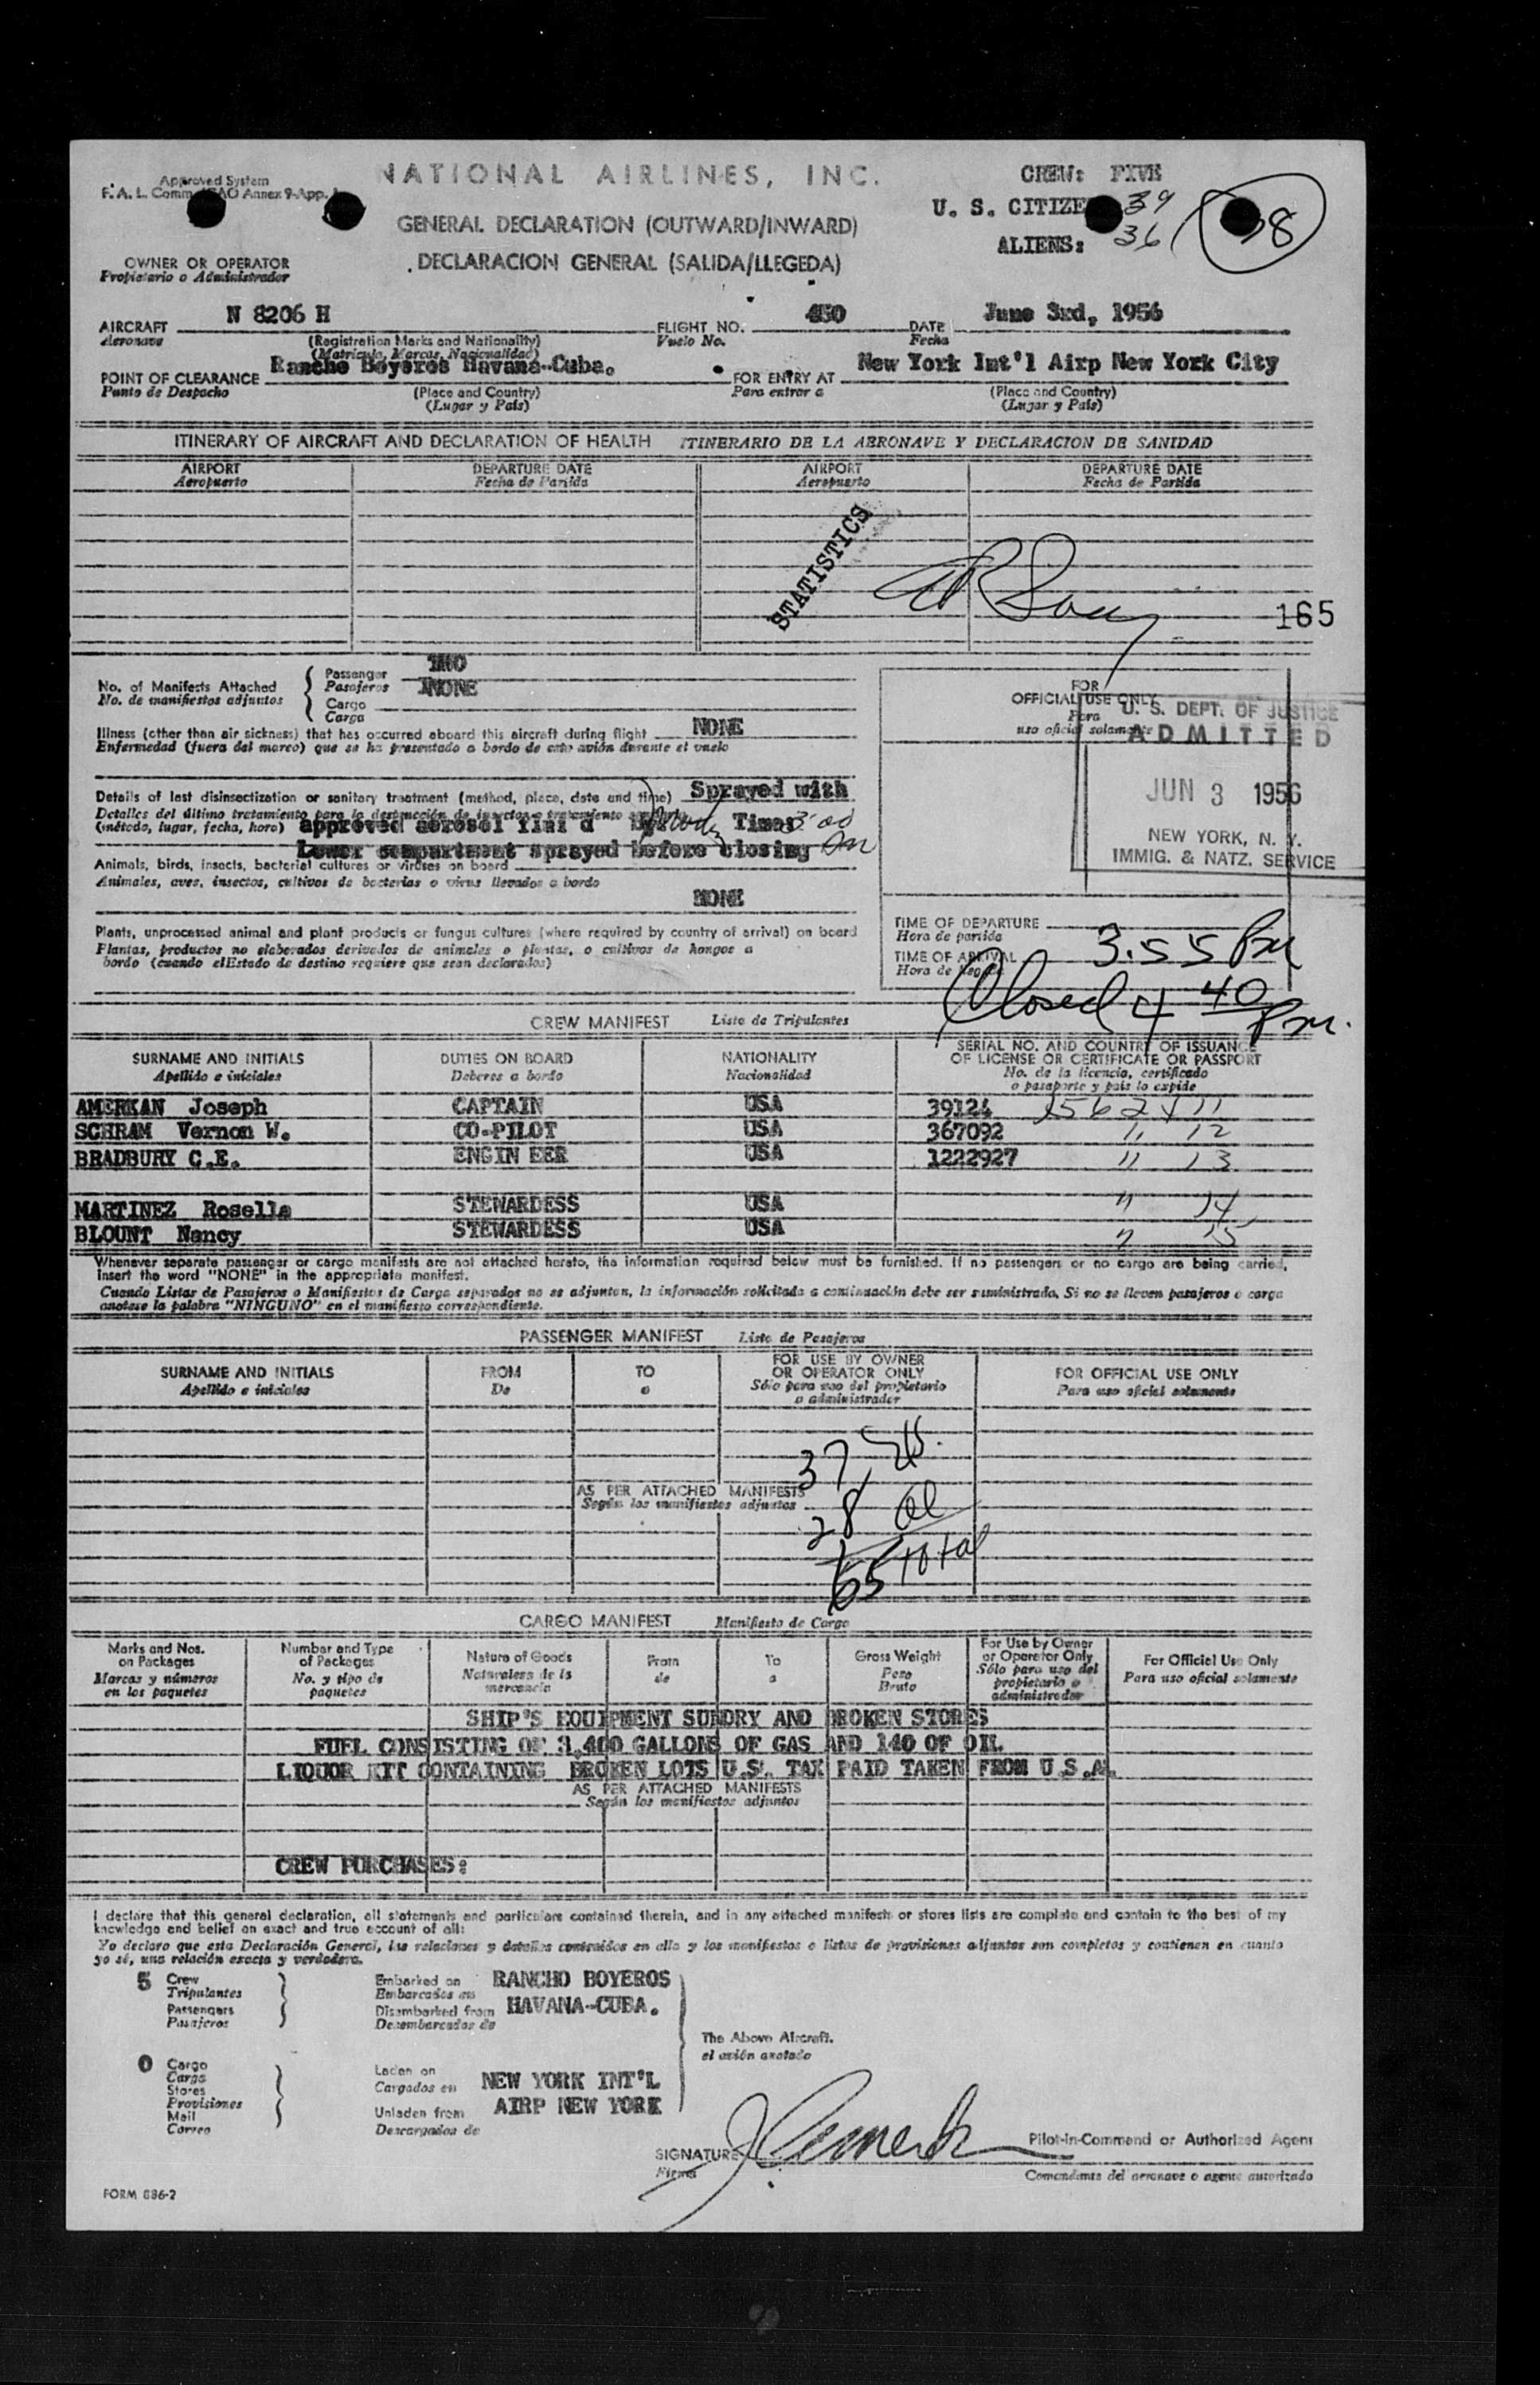 Approved System
NATIONAL AIRLINES, INC.
CREW: FIVE
F.A.L. Comm. ICAO Annex 9-App.
U. S. CITIZE 39
ALIENS: 36
GENERAL DECLARATION (OUTWARD/INWARD)
DECLARACION GENERAL (SALIDA/LLEGEDA)
OWNER OR OPERATOR
Propietario o Administrador
AIRCRAFT N 8206 H FLIGHT NO. 450 DATE June 3rd, 1956
Aeronave (Registration Marks and Nationality) Vuelo No. Fecha
(Matricula, Marcas, Nacionalidad)
POINT OF CLEARANCE Rancho Boyeros Havana-Cuba. FOR ENTRY AT New York Int'l Airp New York City
Punto de Despacho (Place and Country) Para entrar a (Place and Country)
(Lugar y País) (Lugar y País)
ITINERARY OF AIRCRAFT AND DECLARATION OF HEALTH ITINERARIO DE LA AERONAVE Y DECLARACION DE SANIDAD
AIRPORT DEPARTURE DATE AIRPORT DEPARTURE DATE
Aeropuerto Fecha de Partida Aeropuerto Fecha de Partida
STATISTICS
165
No. of Manifests Attached
No. de manifiestos adjuntos
Passenger TWO
Pasajeros NONE
Cargo
Carga
Illness (other than air sickness) that has occurred aboard this aircraft during flight NONE
Enfermedad (fuera del mareo) que se ha presentado a bordo de este avión durante el vuelo
Details of last disinsectization or sanitary treatment (method, place, date and time) Sprayed with
Detalles del último tratamiento para la destrucción de insectos o tratamiento
(método, lugar, fecha, hora) approved aerosol Time 3:00
Lower compartment sprayed before closing
Animals, birds, insects, bacterial cultures or viruses on board
Animales, aves, insectos, cultivos de bacterias o virus llevados a bordo
NONE
Plants, unprocessed animal and plant products or fungus cultures (where required by country of arrival) on board
Plantas, productos no elaborados derivados de animales o plantas, o cultivos de hongos a
bordo (cuando elEstado de destino requiere que sean declarados)
FOR
OFFICIAL USE ONLY
Para
uso oficial solamente
U. S. DEPT. OF JUSTICE
ADMITTED
JUN 3 1956
NEW YORK, N. Y.
IMMIG. & NATZ. SERVICE
TIME OF DEPARTURE
Hora de partida
TIME OF ARRIVAL 3:55 Pm
Hora de llegada
Closed 4 40 Pm.
CREW MANIFEST Lista de Tripulantes
SURNAME AND INITIALS DUTIES ON BOARD NATIONALITY SERIAL NO. AND COUNTRY OF ISSUANCE
OF LICENSE OR CERTIFICATE OR PASSPORT
Apellido e iniciales Deberes a bordo Nacionalidad No. de la licencia, certificado
o pasaporte y país lo expide
AMERKAN Joseph CAPTAIN USA 39124
SCHRAM Vernon W. CO-PILOT USA 367092 " 12
BRADBURY C.E. ENGIN EER USA 1222927 " 13
MARTINEZ Rosella STEWARDESS USA " 14
BLOUNT Nancy STEWARDESS USA " 15
Whenever separate passenger or cargo manifests are not attached hereto, the information required below must be furnished. If no passengers or no cargo are being carried,
insert the word "NONE" in the appropriate manifest.
Cuando Listas de Pasajeros o Manifiestos de Carga separados no se adjuntan, la información solicitada a continuación debe ser suministrada. Si no se lleven pasajeros o carga
anotese la palabra "NINGUNO" en el manifiesto correspondiente.
PASSENGER MANIFEST Lista de Pasajeros
SURNAME AND INITIALS FROM TO FOR USE BY OWNER
OR OPERATOR ONLY FOR OFFICIAL USE ONLY
Apellido e iniciales De a Sólo para uso del propietario
o administrador Para uso oficial solamente
37
AS PER ATTACHED MANIFESTS
Según los manifiestos adjuntos
28 al
65 total
CARGO MANIFEST Manifiesto de Cargo
Marks and Nos.
on Packages
Marcas y números
en los paquetes
Number and Type
of Packages
No. y tipo de
paquetes
Nature of Goods
Naturaleza de la
mercancía
From
de
To
a
Gross Weight
Peso
Bruto
For Use by Owner
or Operator Only
Sólo para uso del
propietario o
administrador
For Official Use Only
Para uso oficial solamente
SHIP'S EQUIPMENT SUNDRY AND BROKEN STORES
FUEL CONSISTING OF 3,400 GALLONS OF GAS AND 140 OF OIL
LIQUOR KIT CONTAINING BROKEN LOTS U.S. TAX PAID TAKEN FROM U.S.A.
AS PER ATTACHED MANIFESTS
Según los manifiestos adjuntos
CREW PURCHASES:
I declare that this general declaration, all statements and particulars contained therein, and in any attached manifests or stores lists are complete and contain to the best of my
knowledge and belief an exact and true account of all:
Yo declaro que esta Declaración General, las relaciones y detalles contenidos en ella y los manifiestos o listas de provisiones adjuntos son completos y contienen en cuanto
yo sé, una relación exacta y verdadera.
5 Crew
Tripulantes
Passengers
Pasajeros
Embarked on RANCHO BOYEROS
Embarcados en
Disembarked from HAVANA-CUBA.
Desembarcados de
The Above Aircraft.
el avión anotado
0 Cargo
Carga
Stores
Provisiones
Mail
Correo
Laden on
Cargados en NEW YORK INT'L
Unladen from AIRP NEW YORK
Descargados de
SIGNATURE Pilot-in-Command or Authorized Agent
Firma Comandante del aeronave o agente autorizado
FORM 886-2